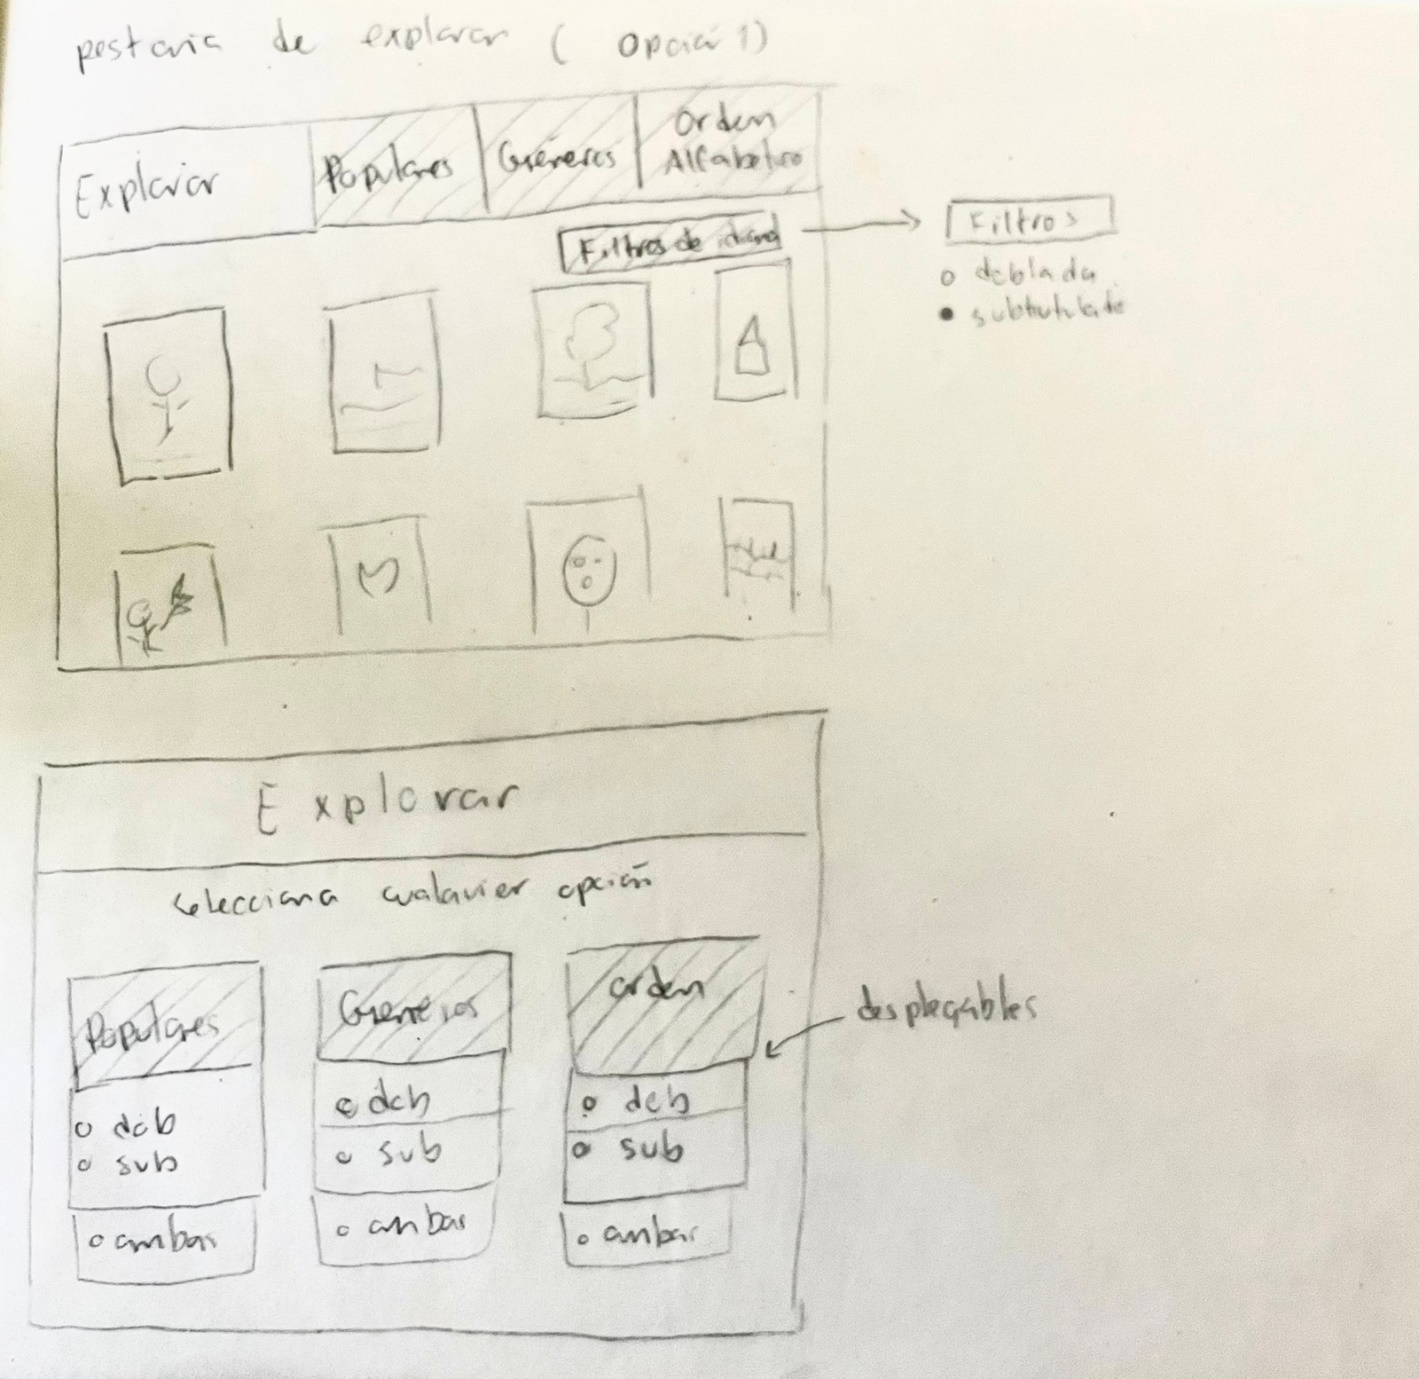 pestaña de explorar ( opción 1)
Explorar
Populares
Géneros
Orden
Alfabetico
Filtros de idioma
Filtros
doblada
subtitulado
Explorar
selecciona cualquier opción
Populares
Generos
orden
desplegables
dob
sub
ambas
dob
sub
ambas
dob
sub
ambas